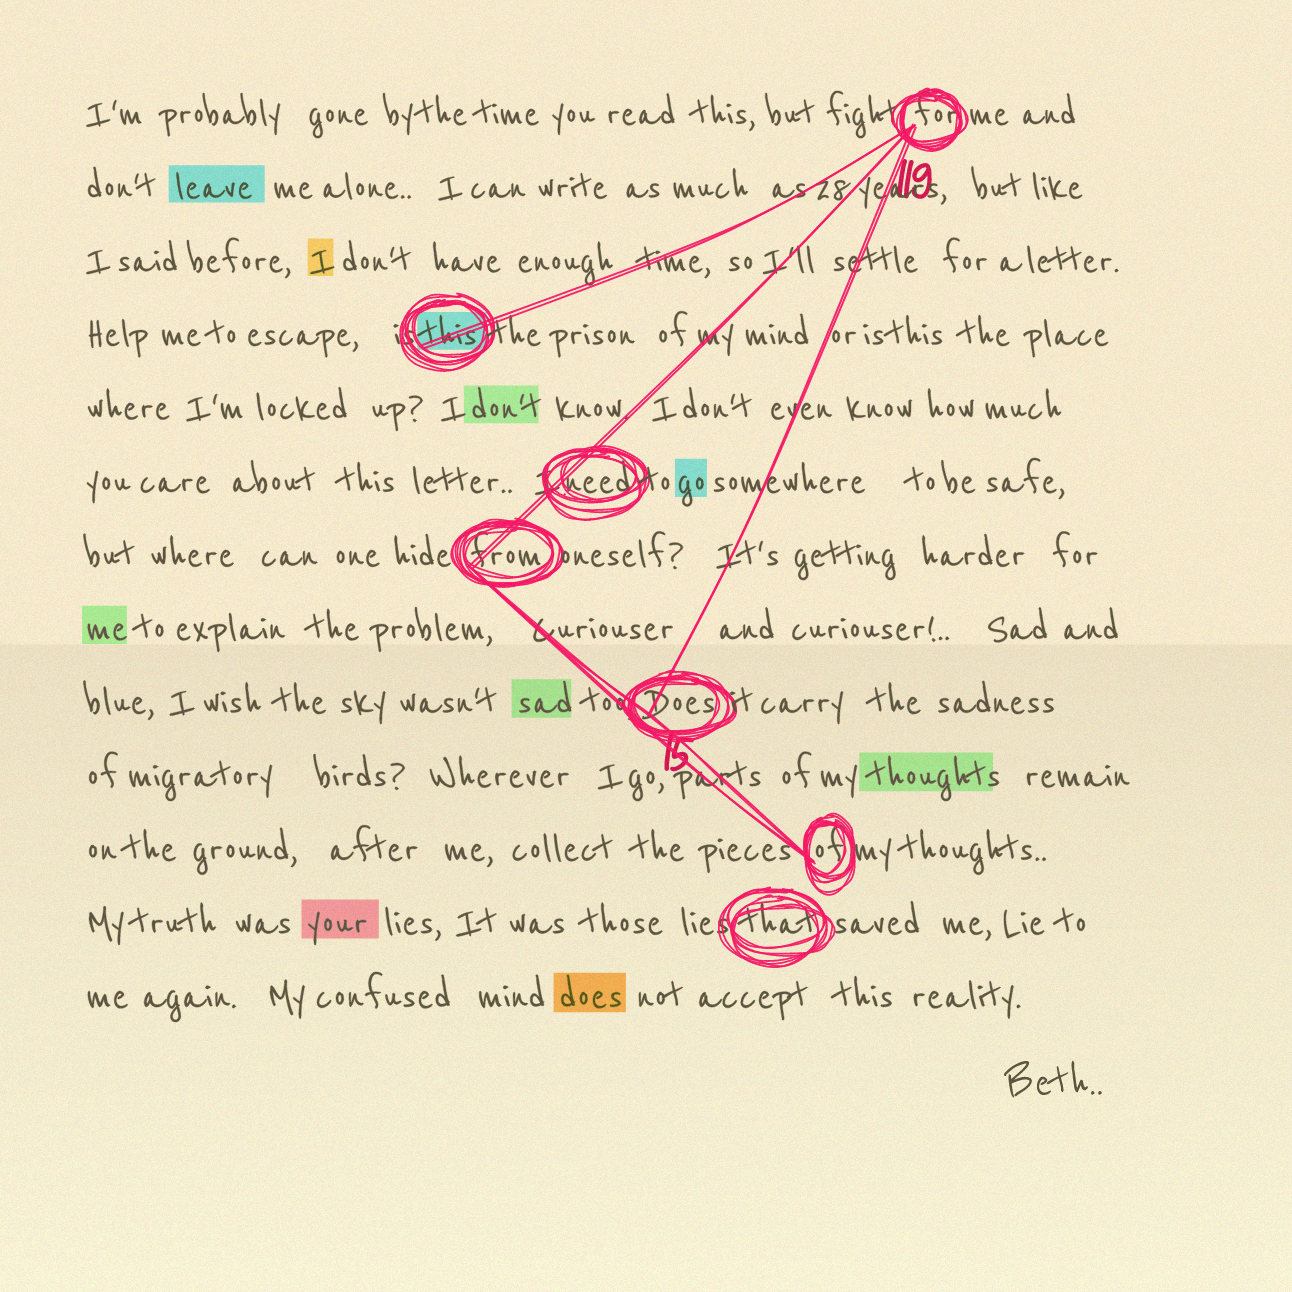 I'm probably gone by the time you read this, but fight for me and
don't leave me alone.. I can write as much as 28 years, but like
119
I said before, I don't have enough time, so I'll settle for a letter.
Help me to escape, is this the prison of my mind or is this the place
where I'm locked up? I don't know. I don't even know how much
you care about this letter.. I need to go somewhere to be safe,
but where can one hide from oneself? It's getting harder for
me to explain the problem, curiouser and curiouser!.. Sad and
blue, I wish the sky wasn't sad too. Does it carry the sadness
15
of migratory birds? Wherever I go, parts of my thoughts remain
on the ground, after me, collect the pieces of my thoughts..
My truth was your lies, It was those lies that saved me, Lie to
me again. My confused mind does not accept this reality.
Beth..